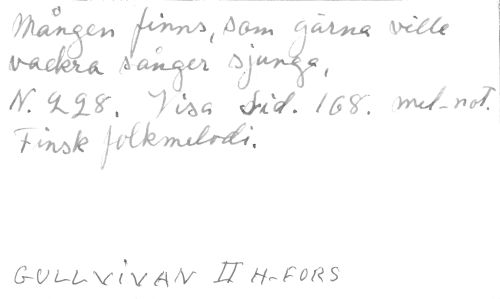 Mången finns, som gärna ville
vackra sånger sjunga,
N. 228. Visa Sid. 168. mel-not.
Finsk folkmelodi.
GULLVIVAN II H-FORS